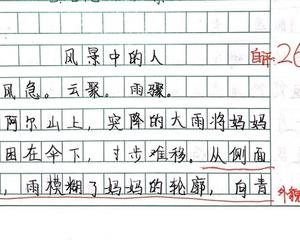 风景中的人
自评:26
风急。云聚。雨骤。
阿尔山上,突降的大雨将妈妈
困在伞下,寸步难移。从侧面
,雨模糊了妈妈的轮廓,向青
外貌